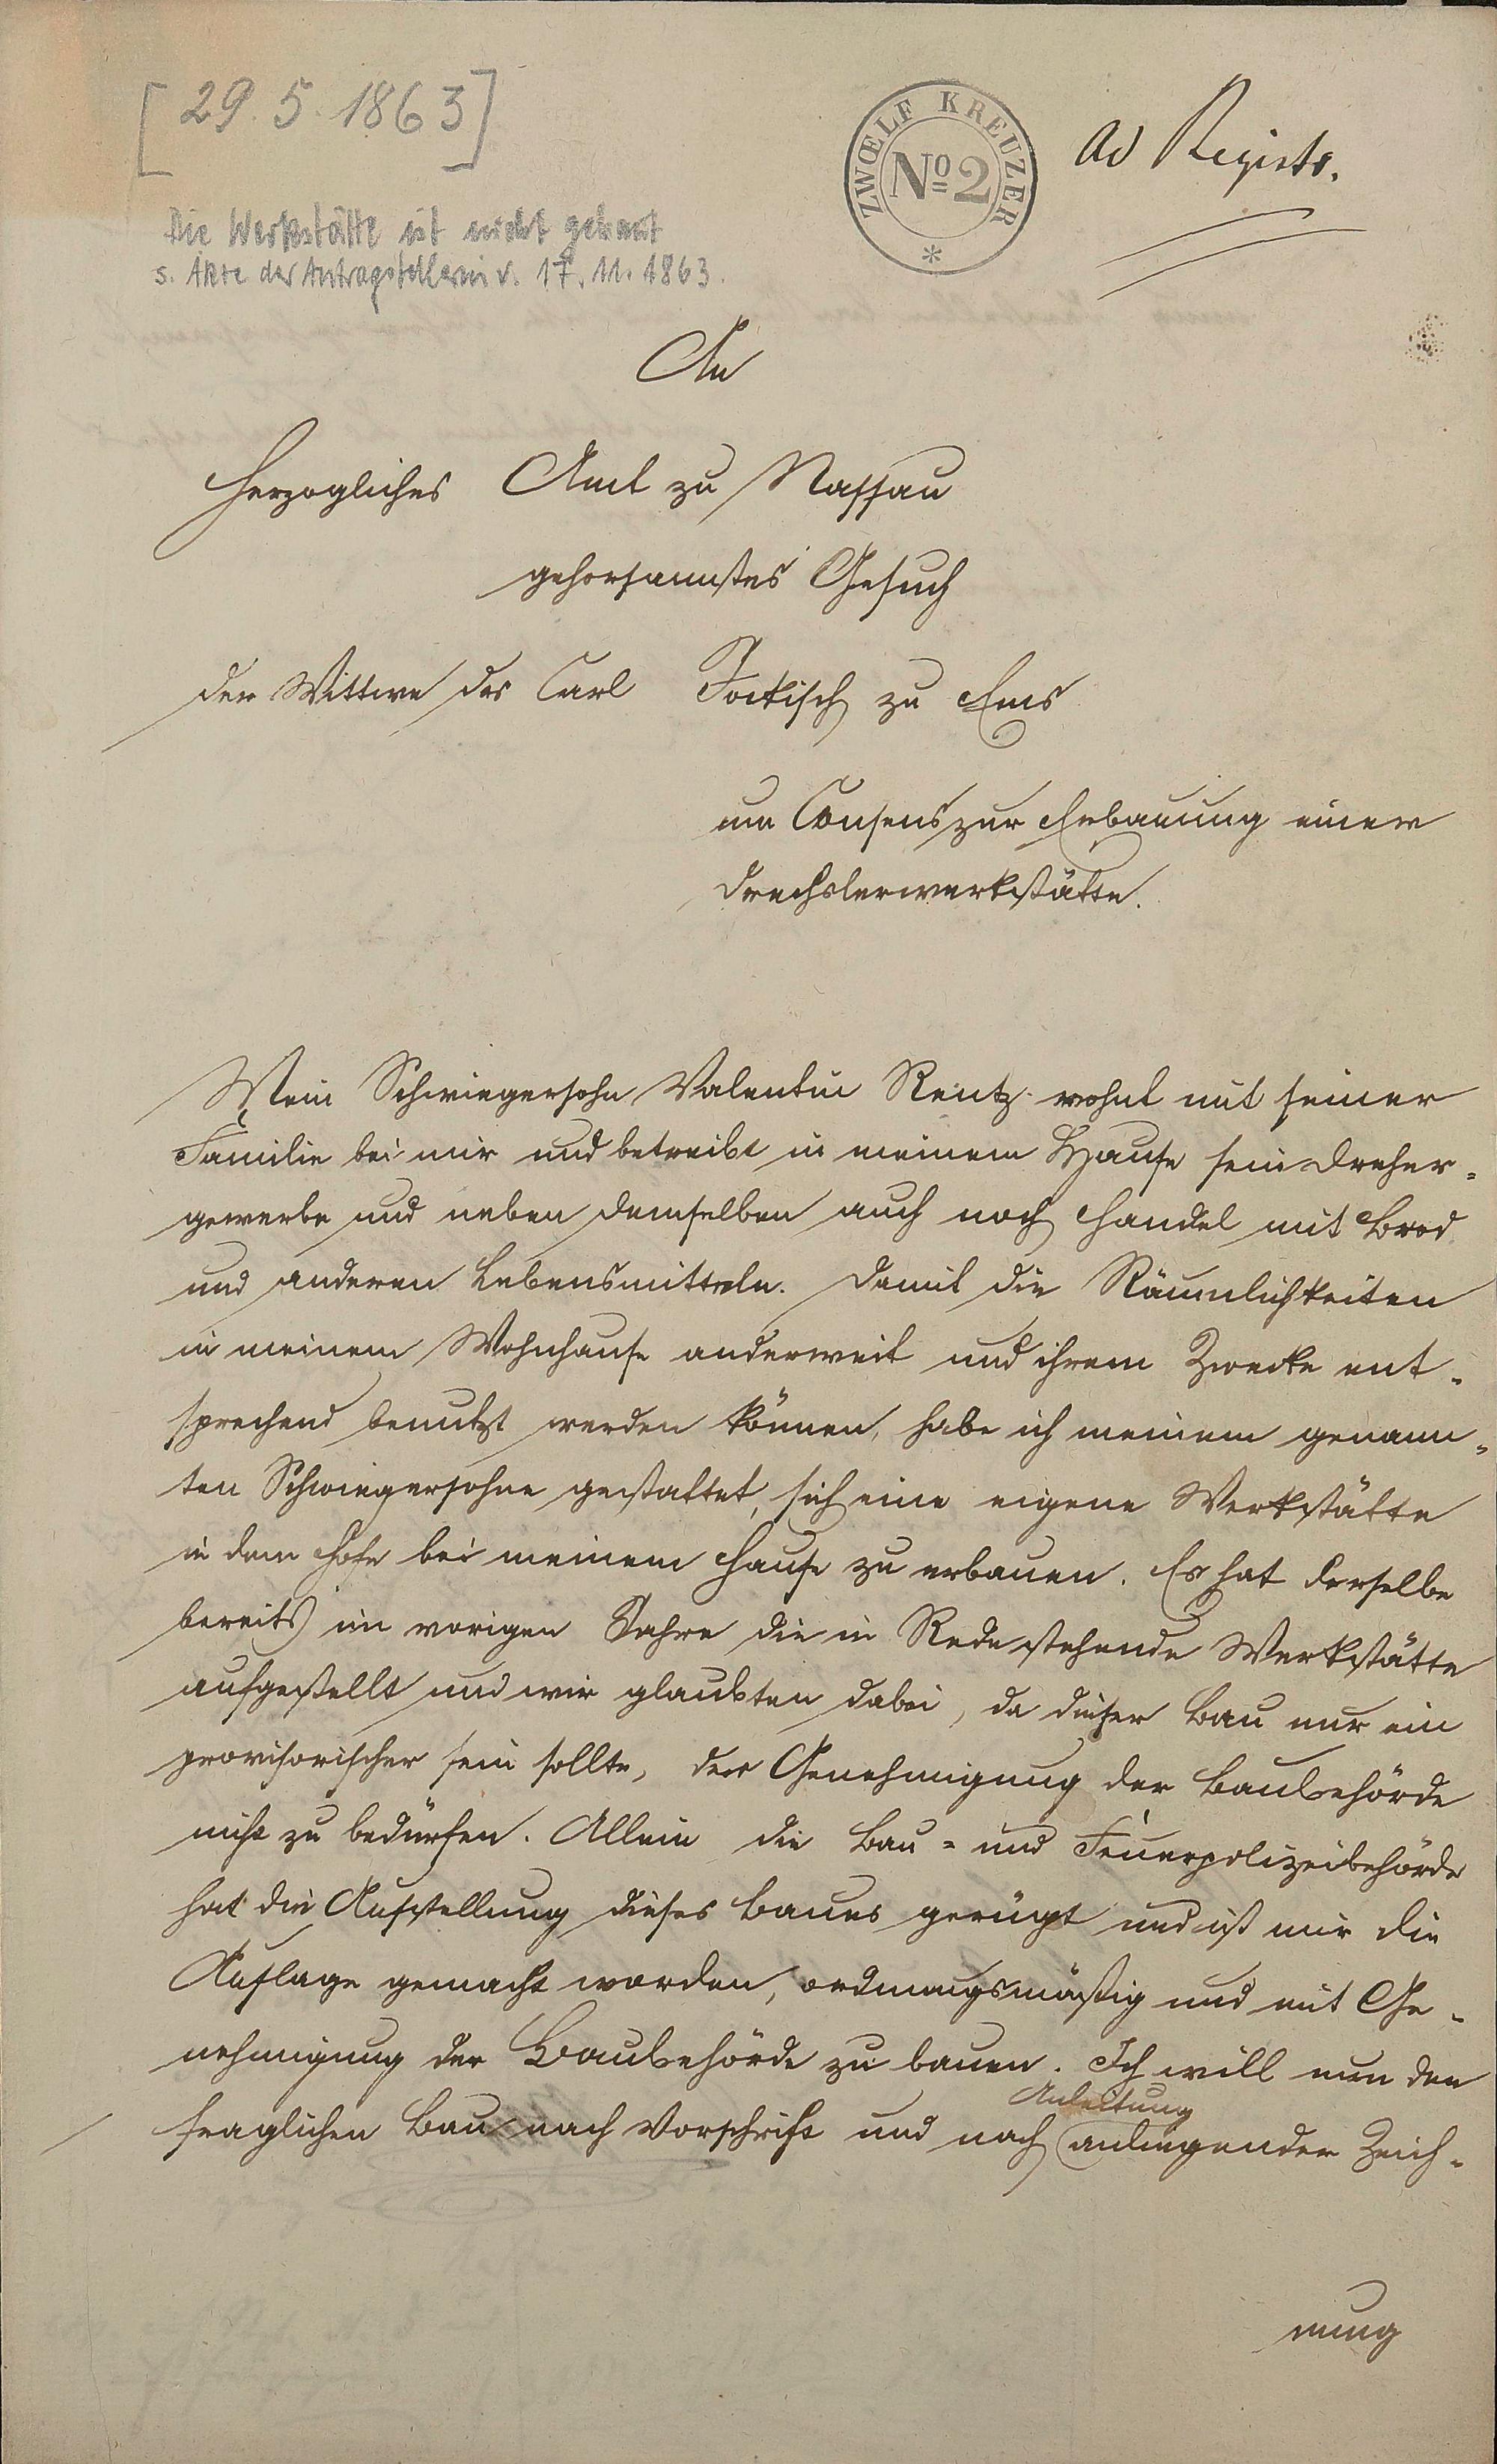 [29.5.1863]
ZWŒLF KREUZER
No 2
*
ad Registr.
Die Werkstätte ist nicht gebaut
s. Akte der Antragstellerin v. 17.11.1863.
An
Herzogliches Amt zu Nassau
gehorsamstes Gesuch
der Wittwe des Carl Jockisch zu Ems
um Consens zur Erbauung einer
Drechslerwerkstätte.
Mein Schwiegersohn Valentin Rentz wohnt mit seiner
Familie bei mir und betreibt in meinem Hause sein Dreher-
gewerbe und neben demselben auch noch Handel mit Brod
und anderen Lebensmitteln. Damit die Räumlichkeiten
in meinem Wohnhause anderweit und ihrem Zwecke ent-
sprechend benutzt werden können, habe ich meinem genann-
ten Schwiegersohne gestattet, sich eine eigene Werkstätte
in dem Hofe bei meinem Hause zu erbauen. Es hat derselbe
bereits im vorigen Jahre die in Rede stehende Werkstätte
aufgestellt und wir glaubten dabei, da dieser Bau nur ein
provisorischer sein sollte, der Genehmigung der Baubehörde
nicht zu bedürfen. Allein die Bau- und Feuerpolizeibehörde
hat die Aufstellung dieses Baues gerügt und ist mir die
Auflage gemacht worden, ordnungsmäßig und mit Ge-
nehmigung der Baubehörde zu bauen. Ich will nun den
Anleitung
fraglichen Bau nach Vorschrift und nach anliegender Zeich-
nung